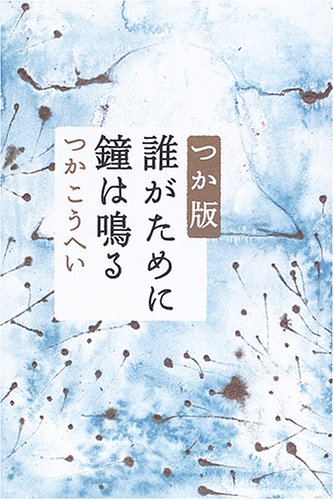 つか版
誰がために
鐘は鳴る
つかこうへい